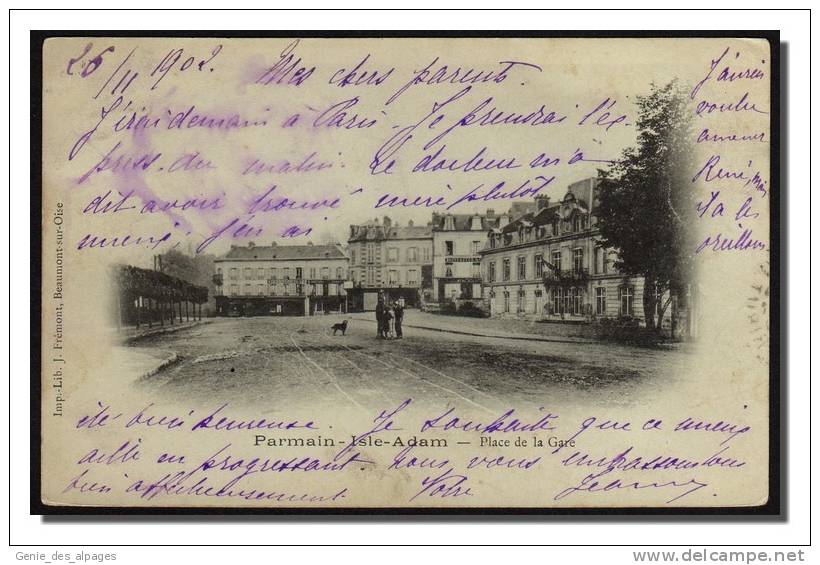 26/11 1902. Mes chers parents.
J'irai demain à Paris. Je prendrai l'ex
press du matin. Le docteur m'a
dit avoir trouvé mémé plutôt
mieux, j'en ai
été bien heureuse. Je souhaite que ce mieux
aille en progressant. Nous vous embrassons tous
bien affectueusement Votre Jeanne
J'aurais
voulu
amener
René, mais
il a les
oreillons
Parmain-Isle-Adam — Place de la Gare
Imp.-Lib. J. Frémont, Beaumont-sur-Oise
Genie_des_alpages
delcampe.net